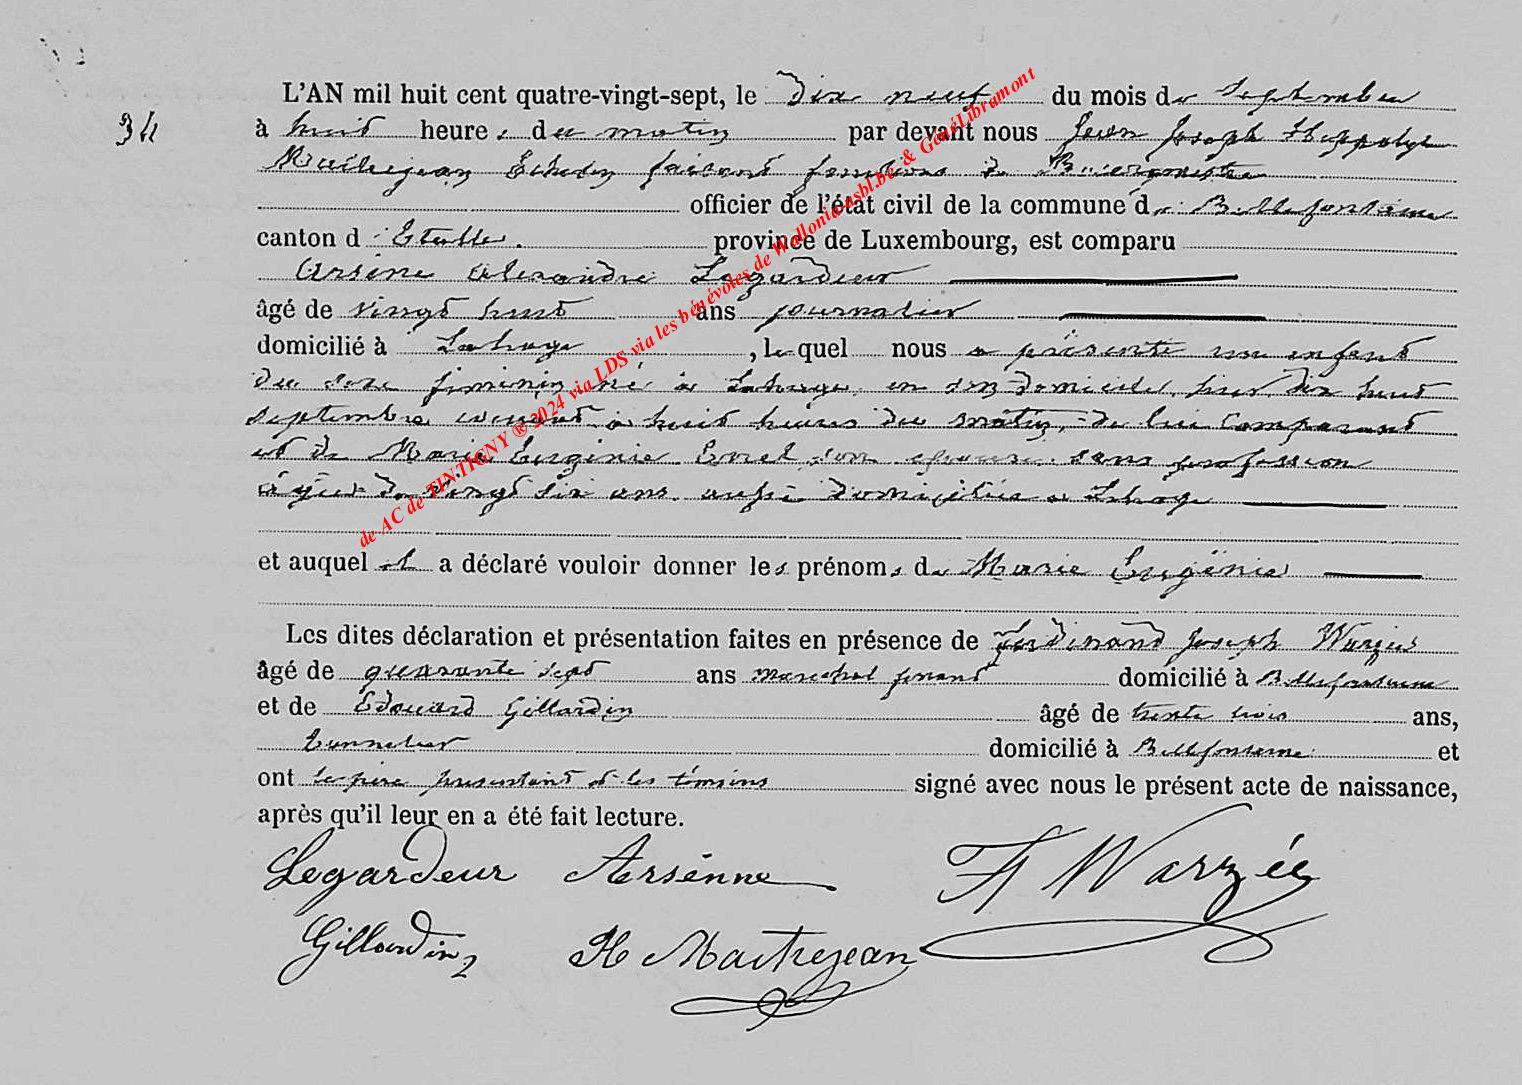 34
L'AN mil huit cent quatre-vingt-sept, le dix neuf du mois de Septembre
à huit heures du matin par devant nous Jean Joseph Hippolyte
Maitrejean Echevin faisant fonctions de Bourgmestre
officier de l'état civil de la commune de Bellefontaine
canton d'Etalle. province de Luxembourg, est comparu
Arsène Alexandre Legardeur
âgé de vingt huit ans journalier
domicilié à Lahage, lequel nous a présenté un enfant
du sexe féminin né à Lahage en son domicile, hier dix huit
septembre courant à huit heures du matin, de lui comparant
et de Marie Eugénie Evrel son épouse sans profession
âgée de vingt six ans aussi domiciliée à Lahage
et auquel il a déclaré vouloir donner les prénoms de Marie Eugénie
Les dites déclaration et présentation faites en présence de Ferdinand Joseph Warzée
âgé de quarante sept ans maréchal ferrant domicilié à Bellefontaine
et de Edouard Gillardin âgé de trente trois ans,
tonnelier domicilié à Bellefontaine et
ont le père présentant et les témoins signé avec nous le présent acte de naissance,
après qu'il leur en a été fait lecture.
Legardeur Arsénne F J Warzée
Gillardin H Maitrejean
de AC de TINTIGNY ® 2024 via LDS via les bénévoles de Wallonia-asbl.be & GénéLibramont